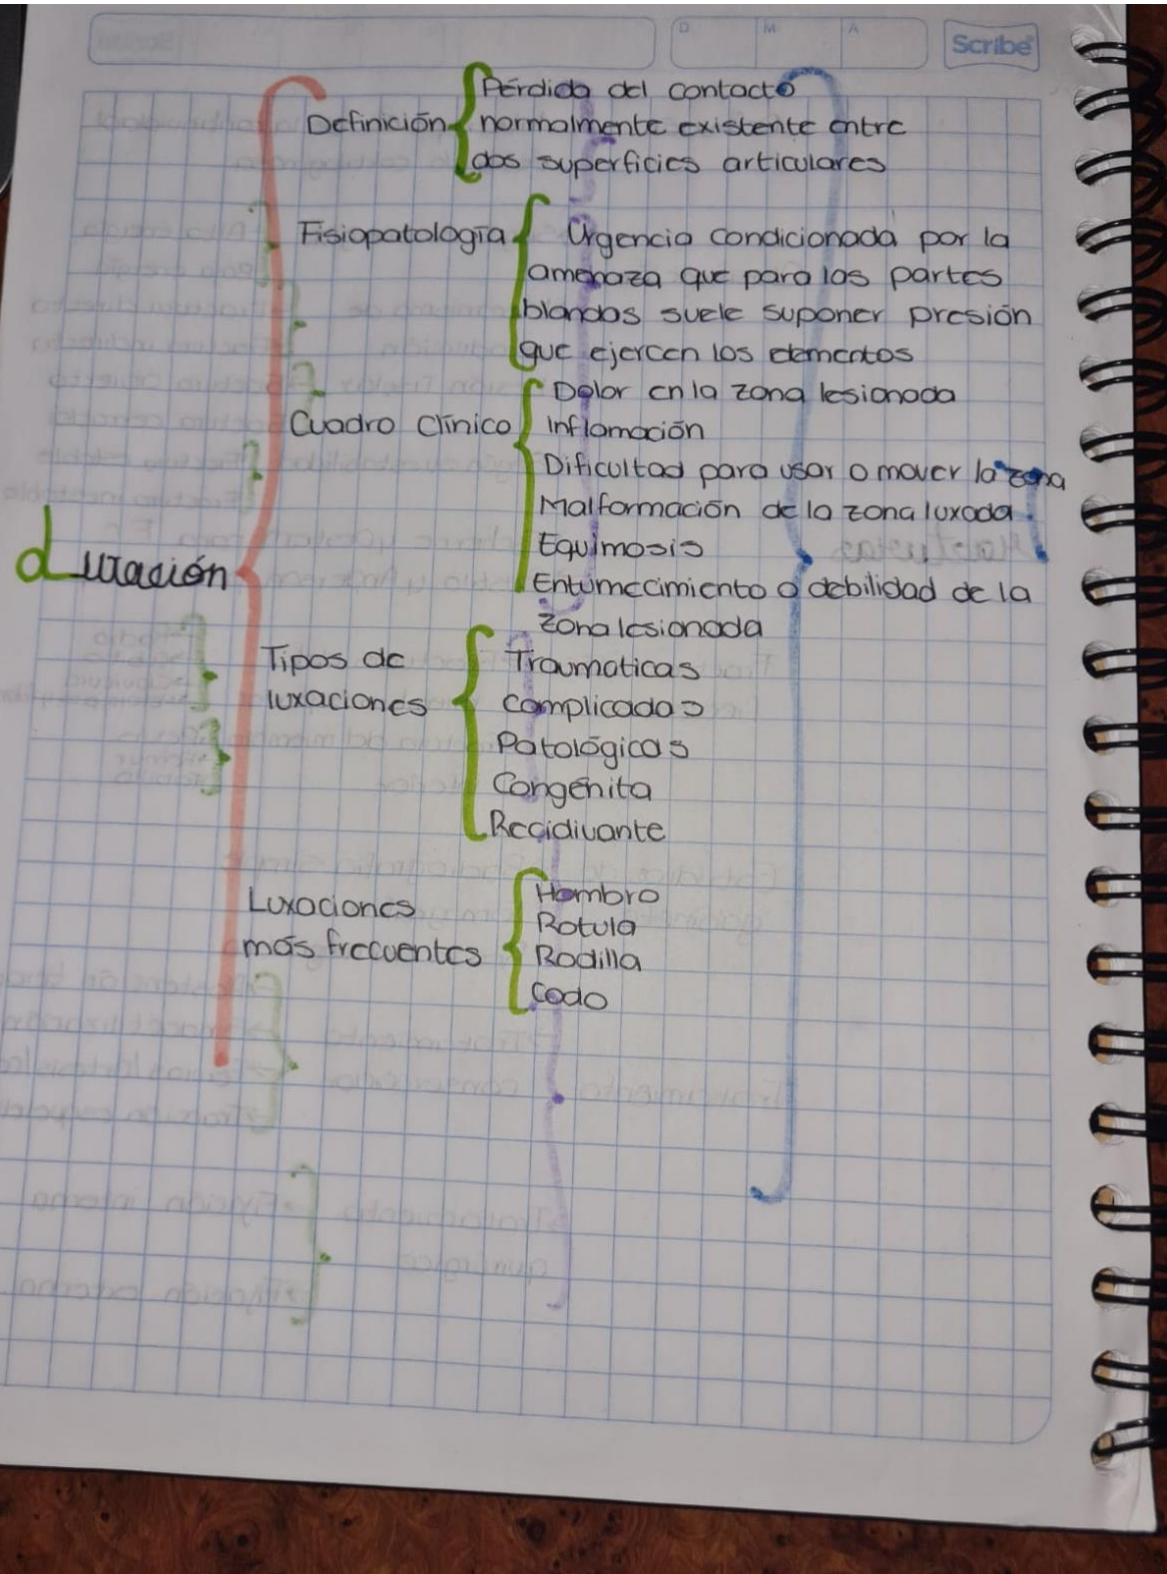 D M A
Scribe
Definición
Pérdida del contacto
normalmente existente entre
dos superficies articulares
Fisiopatología
Urgencia condicionada por la
amenaza que para las partes
blandas suele suponer presión
que ejercen los elementos
Cuadro Clínico
Dolor en la zona lesionada
Inflamación
Dificultad para usar o mover la zona
Malformación de la zona luxada.
Equimosis
Entumecimiento o debilidad de la
zona lesionada
Luxación
Tipos de
luxaciones
Traumaticas
Complicadas
Patológicas
Congénita
Recidivante
Luxaciones
más frecuentes
Hombro
Rotula
Rodilla
Codo